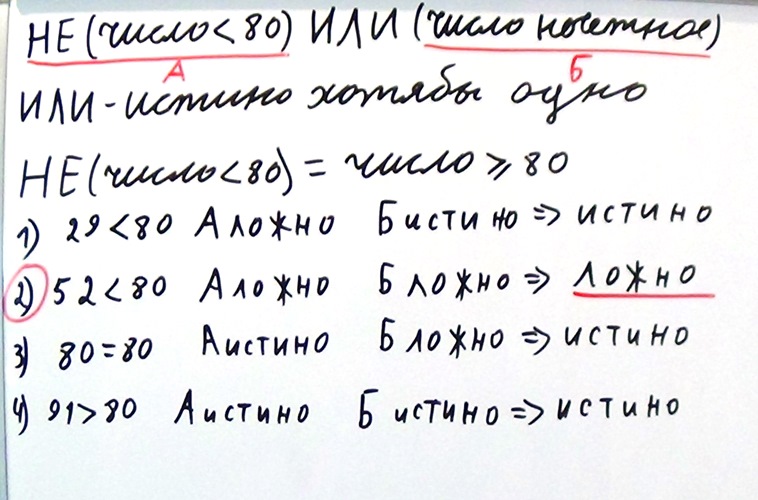 НЕ(число<80) ИЛИ (число нечетное)
А Б
ИЛИ-истино хотябы одно
НЕ(число<80)=число⩾80
1) 29<80 А ложно Б истино => истино
2) 52<80 А ложно Б ложно => ложно
3) 80=80 А истино Б ложно => истино
4) 91>80 А истино Б истино => истино